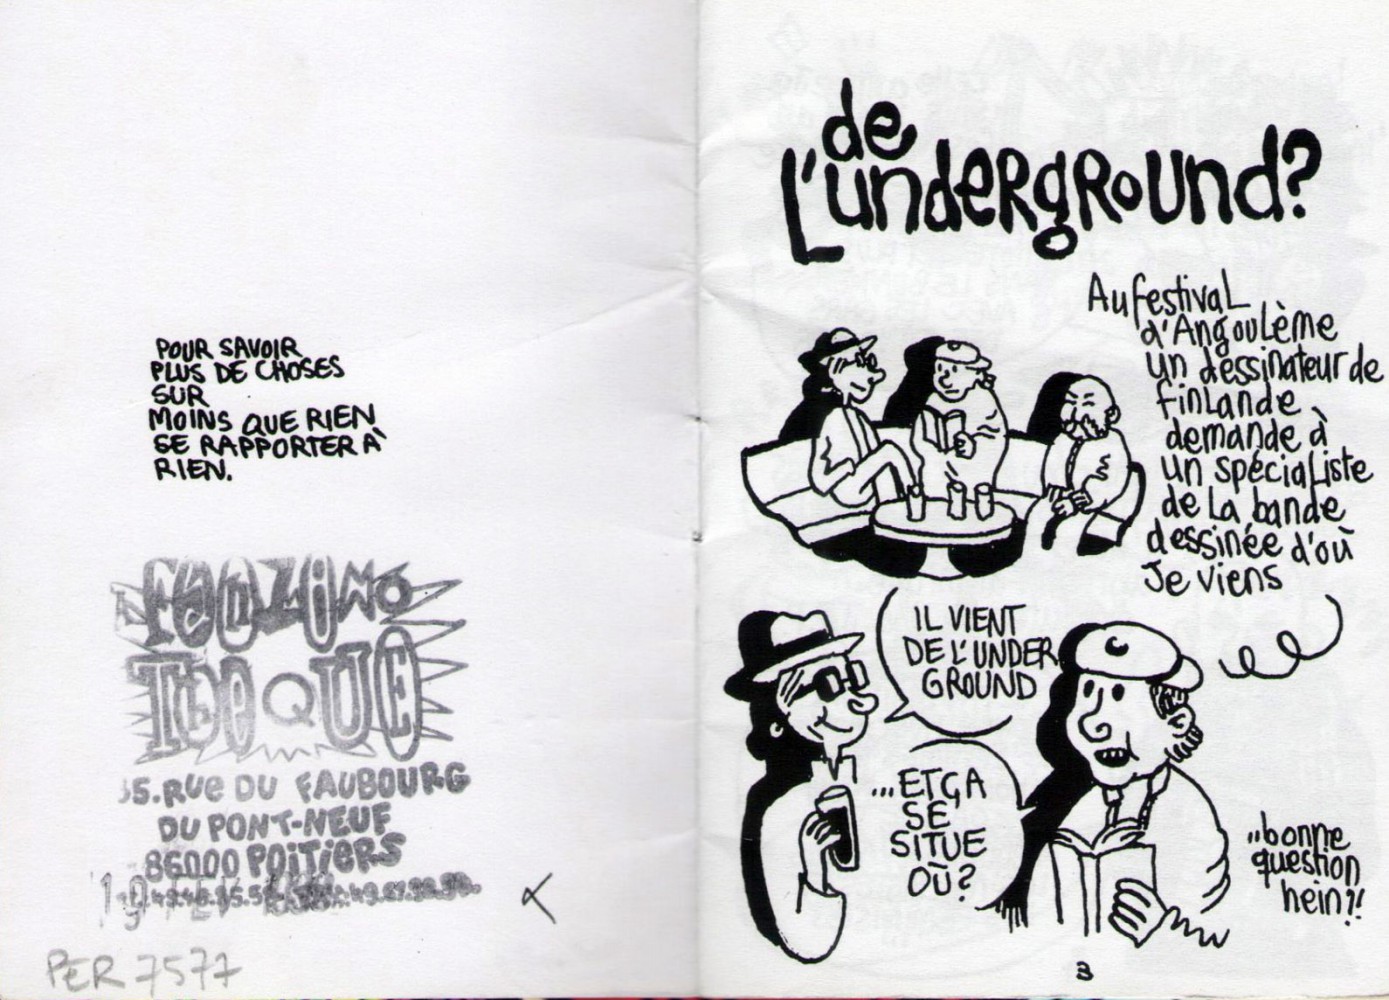 POUR SAVOIR
PLUS DE CHOSES
SUR
MOINS QUE RIEN
SE RAPPORTER À
RIEN.
FANZINO
THÈQUE
.RUE DU FAUBOURG
DU PONT-NEUF
86000 POITIERS
PER 7577
de
L'underground?
Au festival
d'Angoulème
un dessinateur de
finlande
demande à
un spécialiste
de la bande
dessinée d'où
je viens
IL VIENT
DE L'UNDER
GROUND
...ET ÇA
SE
SITUE
OÙ?
..bonne
question
hein?!
3